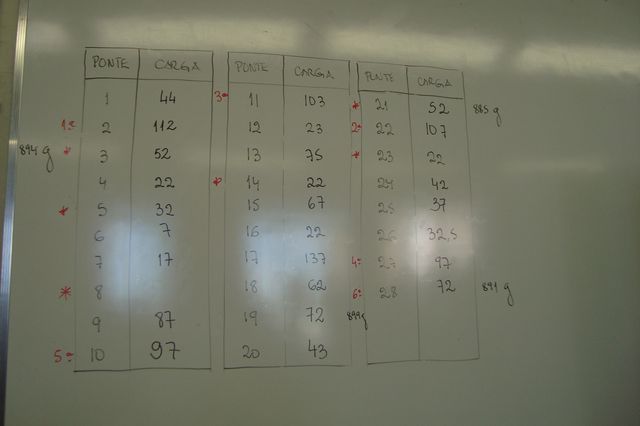 PONTE CARGA PONTE CARGA PONTE CARGA
1 44 3º 11 103 * 21 52 885 g
1º 2 112 12 23 2º 22 107
894 g * 3 52 13 75 * 23 22
4 22 * 14 22 24 42
* 5 32 15 67 25 37
6 7 16 22 26 32,5
7 17 17 137 4º 27 97
* 8 18 62 6º 28 72 891 g
9 87 19 72 899g
5º 10 97 20 43